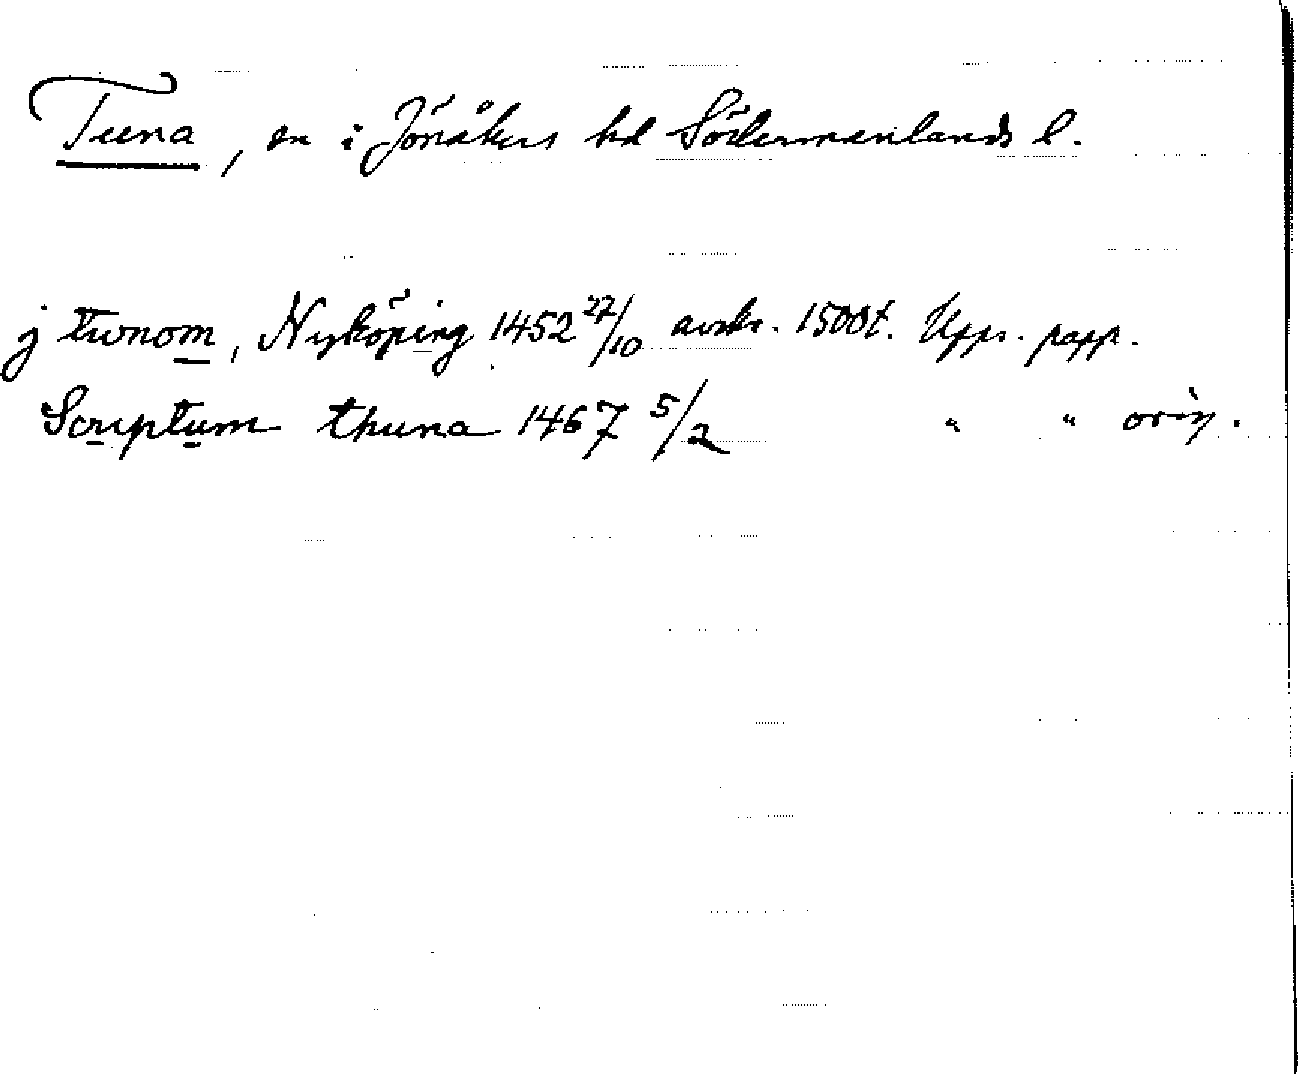 Tuna, sn i Jönåkers hd Södermanlands l.
j twnom, Nyköping 1452 22/10 avskr. 1500t. Upps. papp.
Scriptum thuna 1467 5/2 " " orig.